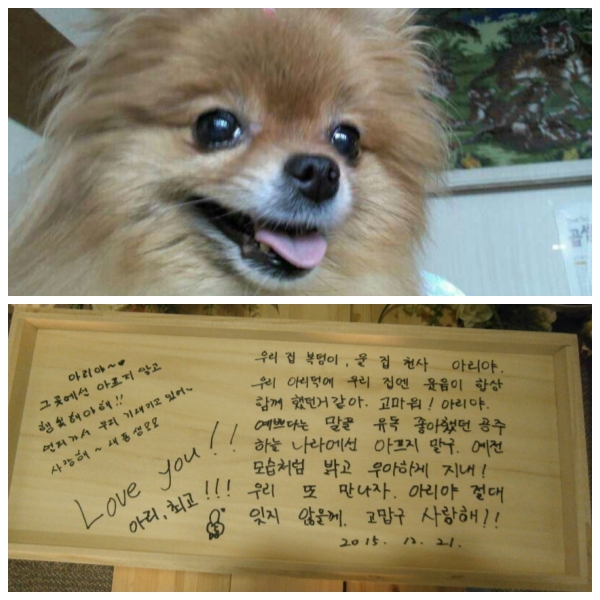 아리야~♥
그곳에선 아프지 말고
행복해야해!!
언제가서 우리 기새키고 있어~
사랑해~
Love you!!
아리, 최고!!!
우리 집 복덩이, 울 집 천사 아리야.
우리 아리덕에 우리 집엔 웃음이 항상
함께 했던거같아. 고마워! 아리야.
예쁘다는 말을 유독 좋아했던 공주
하늘 나라에선 아프지 말구. 예전
모습처럼 밝고 우아하게 지내!
우리 또 만나자. 아리야 절대
잊지 않을께. 고맙구 사랑해!!
2015. 12. 21.